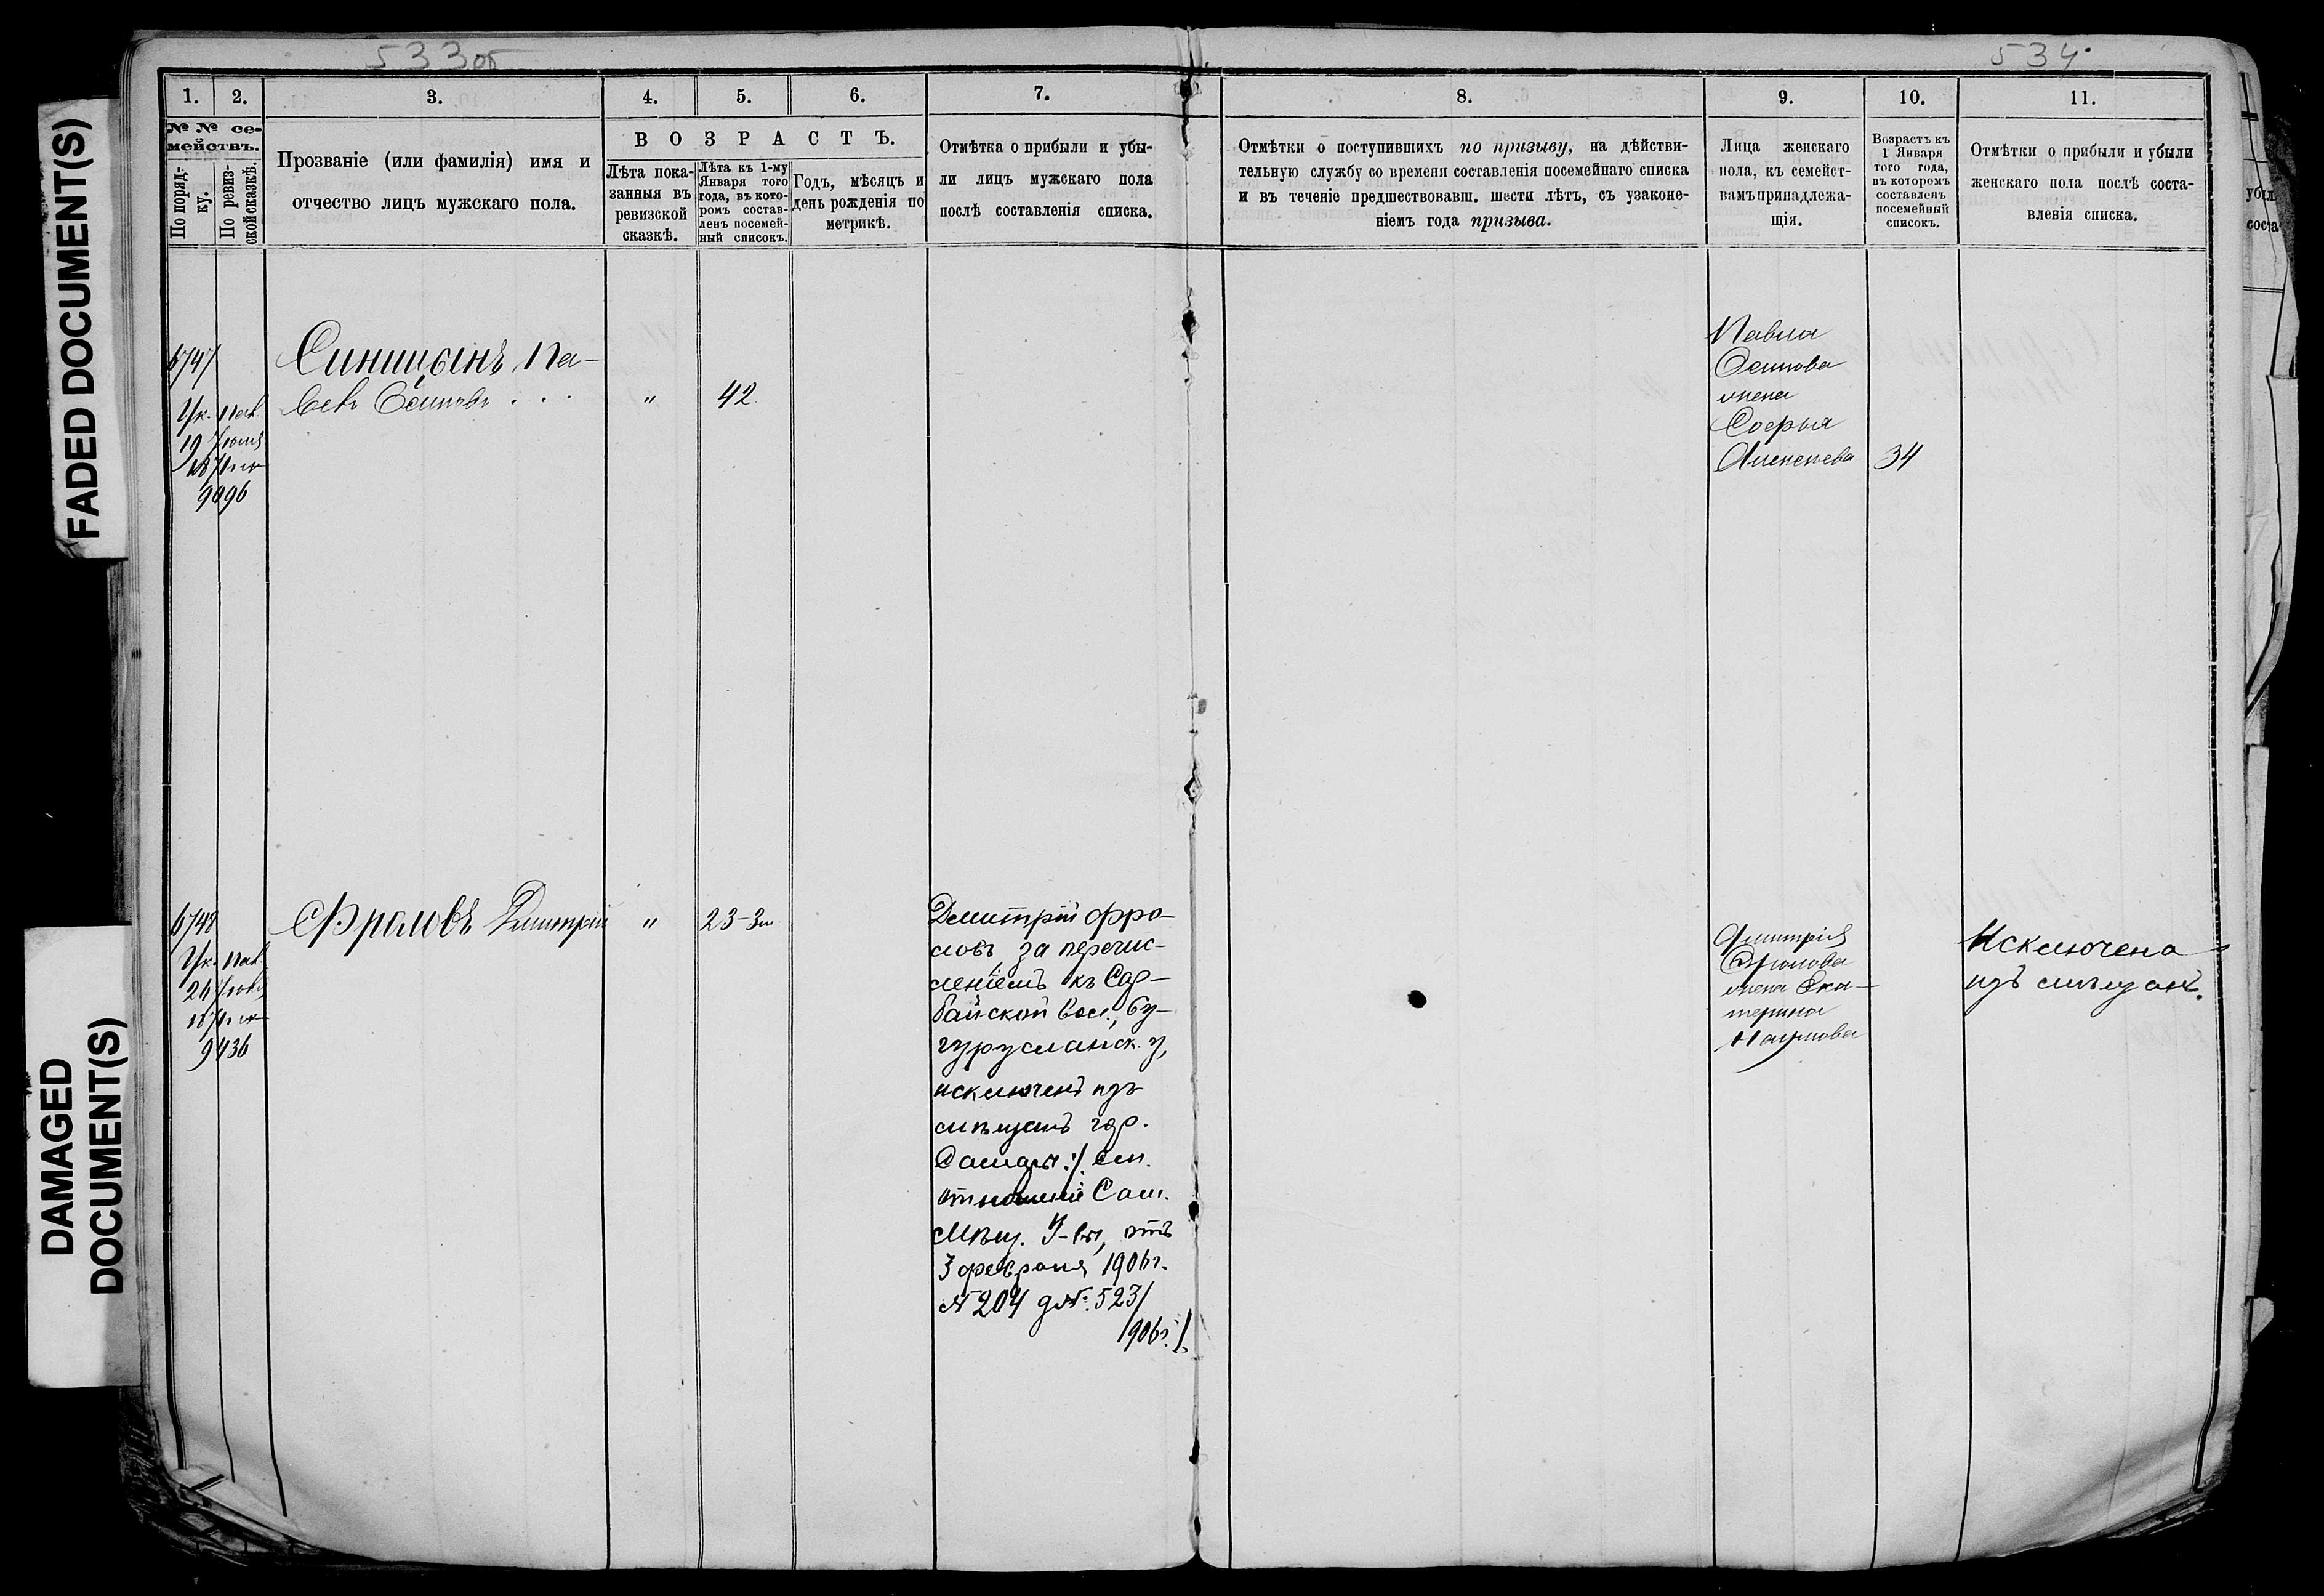 533об
534.
FADED DOCUMENT(S)
DAMAGED
DOCUMENT(S)
1.
2.
3.
4.
5.
6.
7.
8.
9.
10.
11.
№ № се-
мействъ.
По поряд-
ку.
По ревиз-
ской сказкѣ.
Прозваніе (или фамилія) имя и
отчество лицъ мужскаго пола.
ВОЗРАСТЪ.
Лѣта пока-
занныя въ
ревизской
сказкѣ.
Лѣта къ 1-му
Января того
года, въ кото-
ромъ состав-
ленъ посемей-
ный списокъ.
Годъ, мѣсяцъ и
день рожденія по
метрикѣ.
Отмѣтка о прибыли и убы-
ли лицъ мужскаго пола
послѣ составленія списка.
Отмѣтки о поступившихъ по призыву, на дѣйстви-
тельную службу со времени составленія посемейнаго списка
и въ теченіе предшествовавш. шести лѣтъ, съ узаконе-
ніемъ года призыва.
Лица женскаго
пола, къ семейст-
вамъ принадлежа-
щія.
Возрастъ къ
1 Января
того года,
въ которомъ
составленъ
посемейный
списокъ.
Отмѣтки о прибыли и убыли
женскаго пола послѣ соста-
вленія списка.
убыл
соста
6747
Ук. Пал.
19 Іюля
9096
Синицынъ Па-
велъ Осиповъ . . .
"
42.
Павла
Осипова
жена
Софья
Алексеева
34
6748
Ук. Пал.
26
9436
Фроловъ Дмитрій
"
23-3м
Дмитрій Фро-
ловъ, за перечис-
леніемъ къ Сар-
байской вол., Бу-
гурусланск. у,
исключенъ изъ
мѣщанъ гор.
Самары :/. См.
отношеніе Сам.
Мѣщ. У-вы, отъ
3 февраля 1906г.
№ 204 д№. 523/
1906г. /.
Дмитрія
Фролова
жена Ека-
терина
Наумова
Исключена
изъ мѣщанъ.